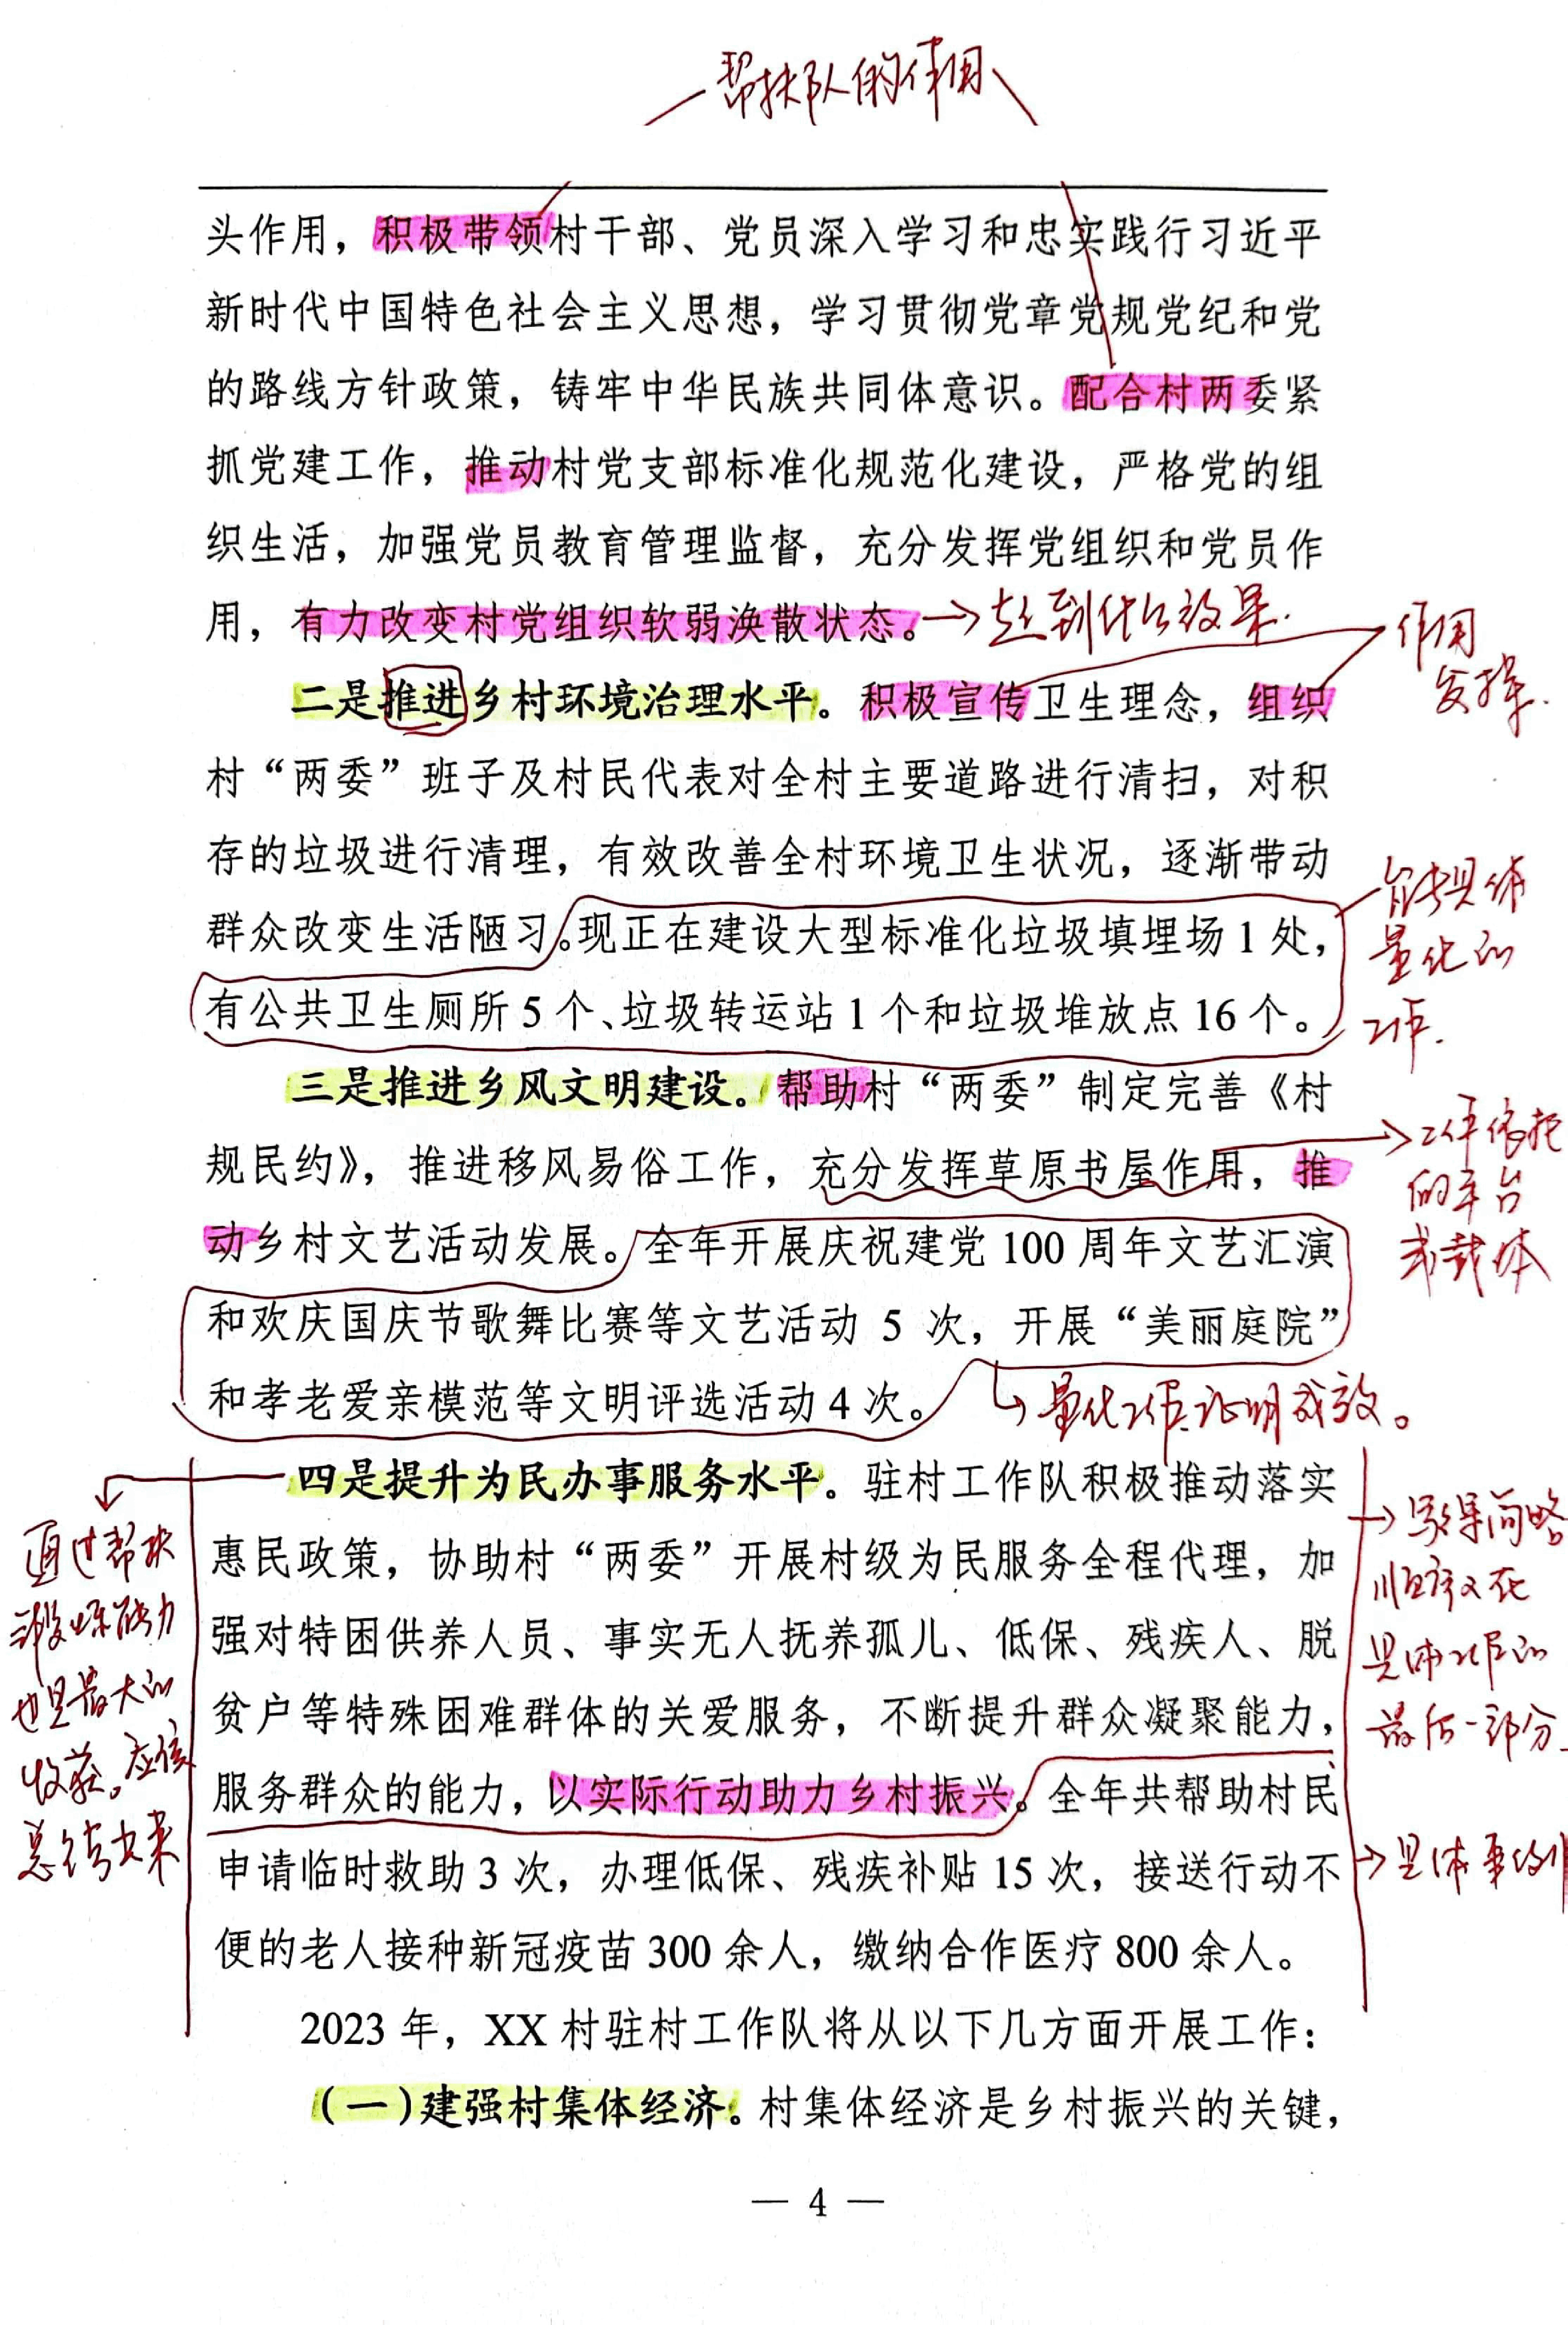 帮扶队的作用
头作用，积极带领村干部、党员深入学习和忠实践行习近平
新时代中国特色社会主义思想，学习贯彻党章党规党纪和党
的路线方针政策，铸牢中华民族共同体意识。配合村两委紧
抓党建工作，推动村党支部标准化规范化建设，严格党的组
织生活，加强党员教育管理监督，充分发挥党组织和党员作
用，有力改变村党组织软弱涣散状态。
起到什么效果.
作用
发挥.
二是推进乡村环境治理水平。积极宣传卫生理念，组织
村“两委”班子及村民代表对全村主要道路进行清扫，对积
存的垃圾进行清理，有效改善全村环境卫生状况，逐渐带动
群众改变生活陋习。现正在建设大型标准化垃圾填埋场 1 处，
有公共卫生厕所 5 个、垃圾转运站 1 个和垃圾堆放点 16 个。
具体
量化的
工作.
三是推进乡风文明建设。帮助村“两委”制定完善《村
规民约》，推进移风易俗工作，充分发挥草原书屋作用，推
动乡村文艺活动发展。全年开展庆祝建党 100 周年文艺汇演
和欢庆国庆节歌舞比赛等文艺活动 5 次，开展“美丽庭院”
和孝老爱亲模范等文明评选活动 4 次。
工作依托
的平台
或载体
量化工作.证明成效。
四是提升为民办事服务水平。驻村工作队积极推动落实
惠民政策，协助村“两委”开展村级为民服务全程代理，加
强对特困供养人员、事实无人抚养孤儿、低保、残疾人、脱
贫户等特殊困难群体的关爱服务，不断提升群众凝聚能力，
服务群众的能力，以实际行动助力乡村振兴。全年共帮助村民
申请临时救助 3 次，办理低保、残疾补贴 15 次，接送行动不
便的老人接种新冠疫苗 300 余人，缴纳合作医疗 800 余人。
通过帮扶
锻炼能力
也是最大的
收获。应该
总结出来
简略
顺序又在
具体工作的
最后一部分
具体事例
2023 年，XX 村驻村工作队将从以下几方面开展工作：
（一）建强村集体经济。村集体经济是乡村振兴的关键，
— 4 —